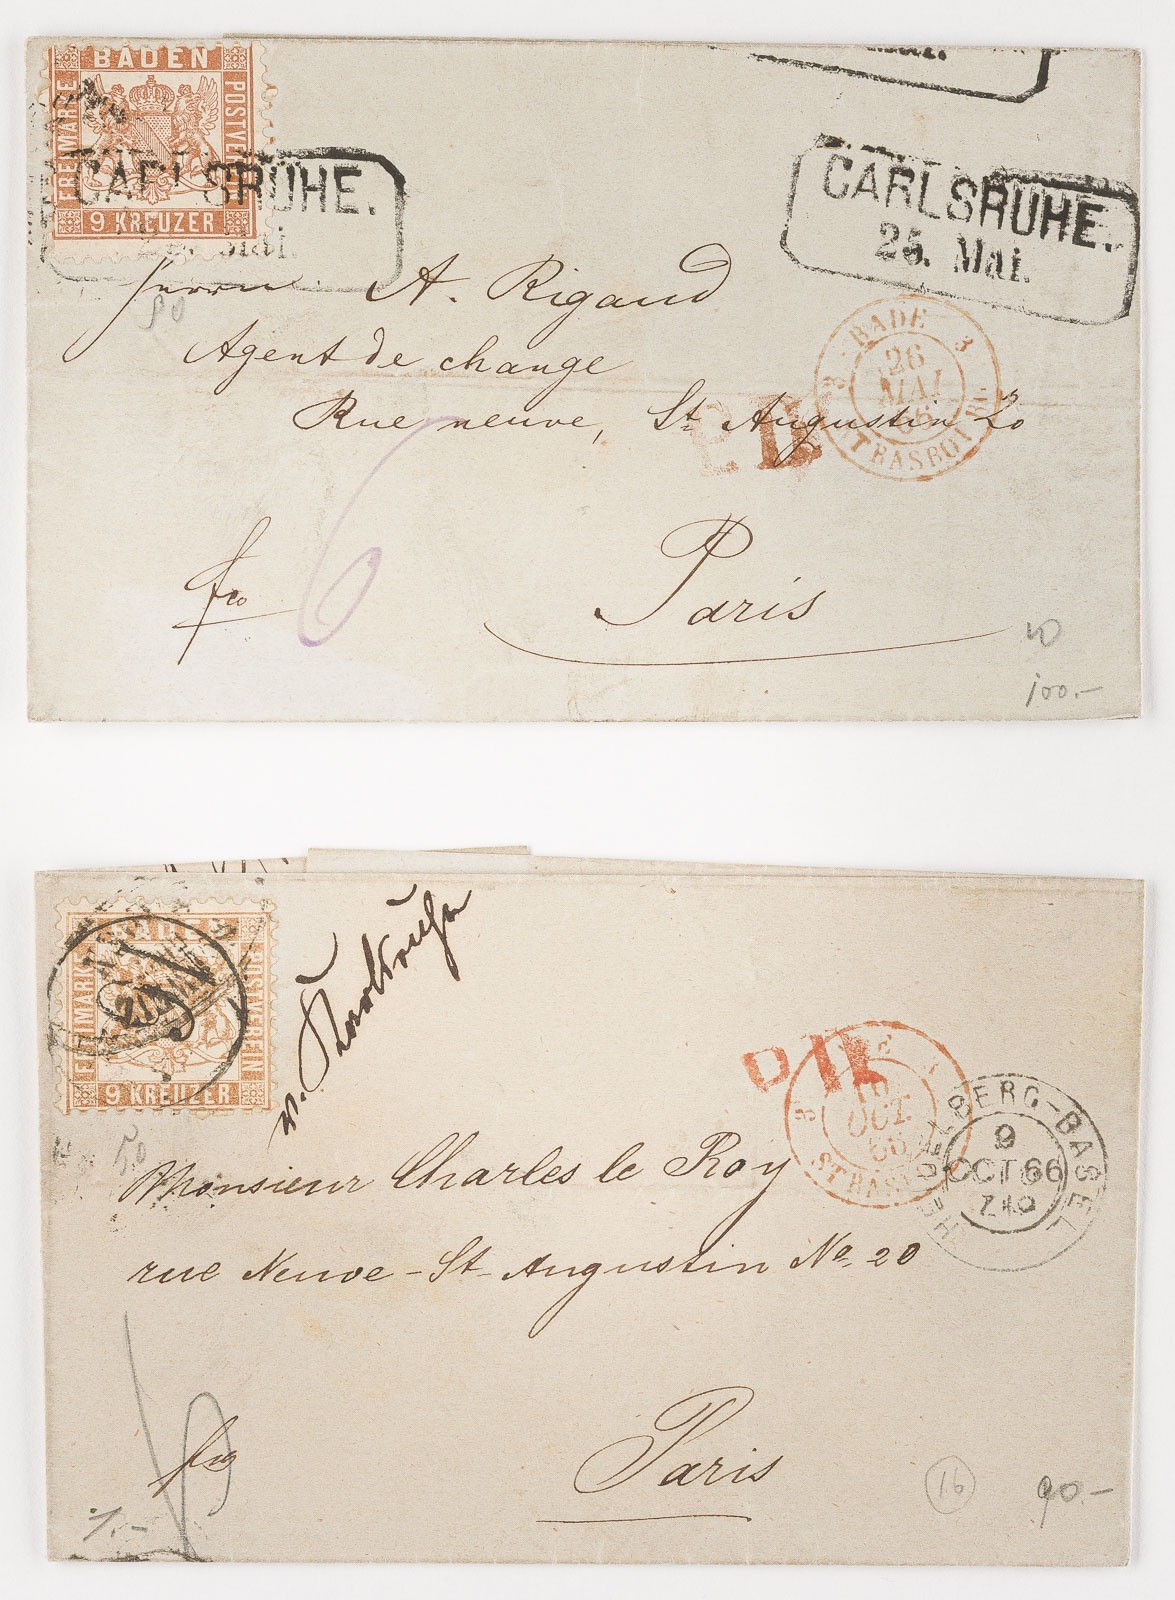 BADEN
FREIMARKE
POSTVEREIN
9 KREUZER
CARLSRUHE.
Mai.
CARLSRUHE.
25. Mai.
Herrn A. Rigaud
Agent de change
Rue neuve, St Augustin 20
BADE 3
26
MAI
66
STRASBOURG
P.D.
fco
6
Paris
80
100.-
BADEN
FREIMARKE
POSTVEREIN
9 KREUZER
v. Karlsruhe
P.D.
3
10
OCT.
66
HEIDELBERG-BASEL
9
OCT 66
Z 10
50
Monsieur Charles le Roy
rue Neuve-St-Augustin No. 20
fco
Paris
16
90.-